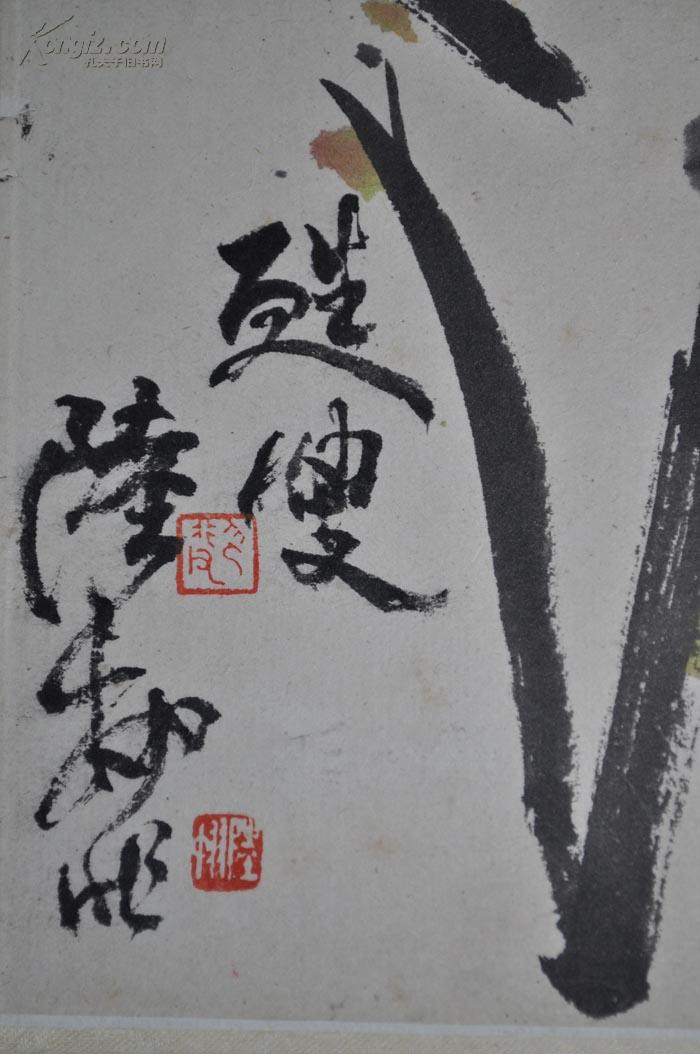 Kongfz.com
孔夫子旧书网
甦叟
陸抑非